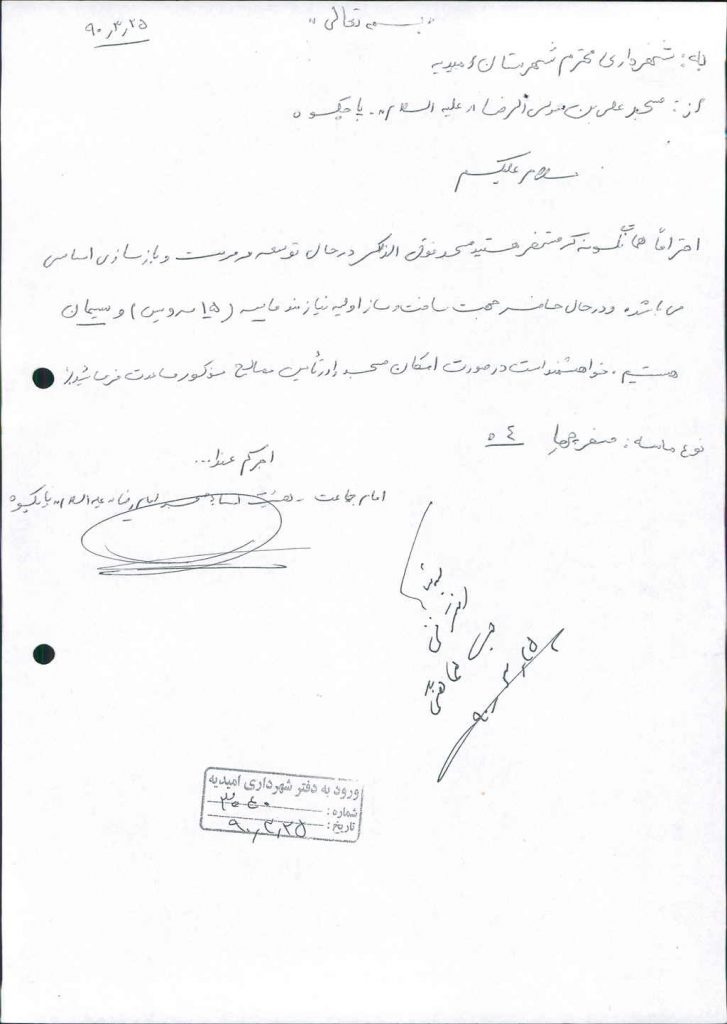 بسمه تعالی
۹۰٫۳٫۲۵
به: شهرداری محترم شهرستان امیدیه
از: مسجد علی بن موسی الرضا علیه السلام
سلام علیکم
احتراماً همانگونه که مستحضر هستید مسجد فوق الذکر در حال توسعه و مرمت و بازسازی اساسی
می باشد و در حال حاضر جهت ساخت و ساز اولیه نیازمند ماسه (۱۵ سرویس) و سیمان
هستیم. خواهشمند است در صورت امکان مسجد را در تأمین مصالح مذکور مساعدت فرمائید.
نوع ماسه: صفر چهار ۰۴
اجرکم عندا...
امام جماعت - هیئت امناء مسجد امام رضا علیه السلام
۹۰٫۳٫۲۵
ورود به دفتر شهرداری امیدیه
شماره: ۳۰۴۰
تاریخ: ۹۰٫۳٫۲۵